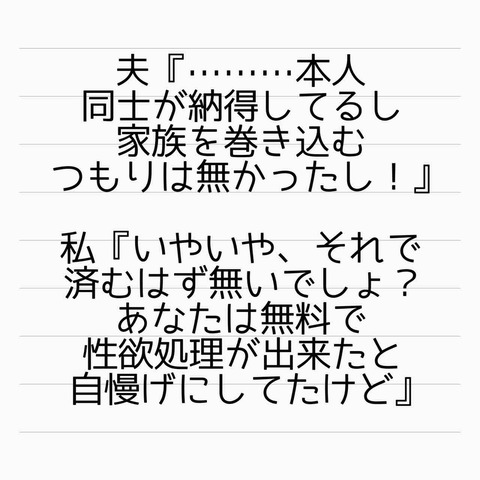 夫『………本人
同士が納得してるし
家族を巻き込む
つもりは無かったし！』
私『いやいや、それで
済むはず無いでしょ？
あなたは無料で
性欲処理が出来たと
自慢げにしてたけど』